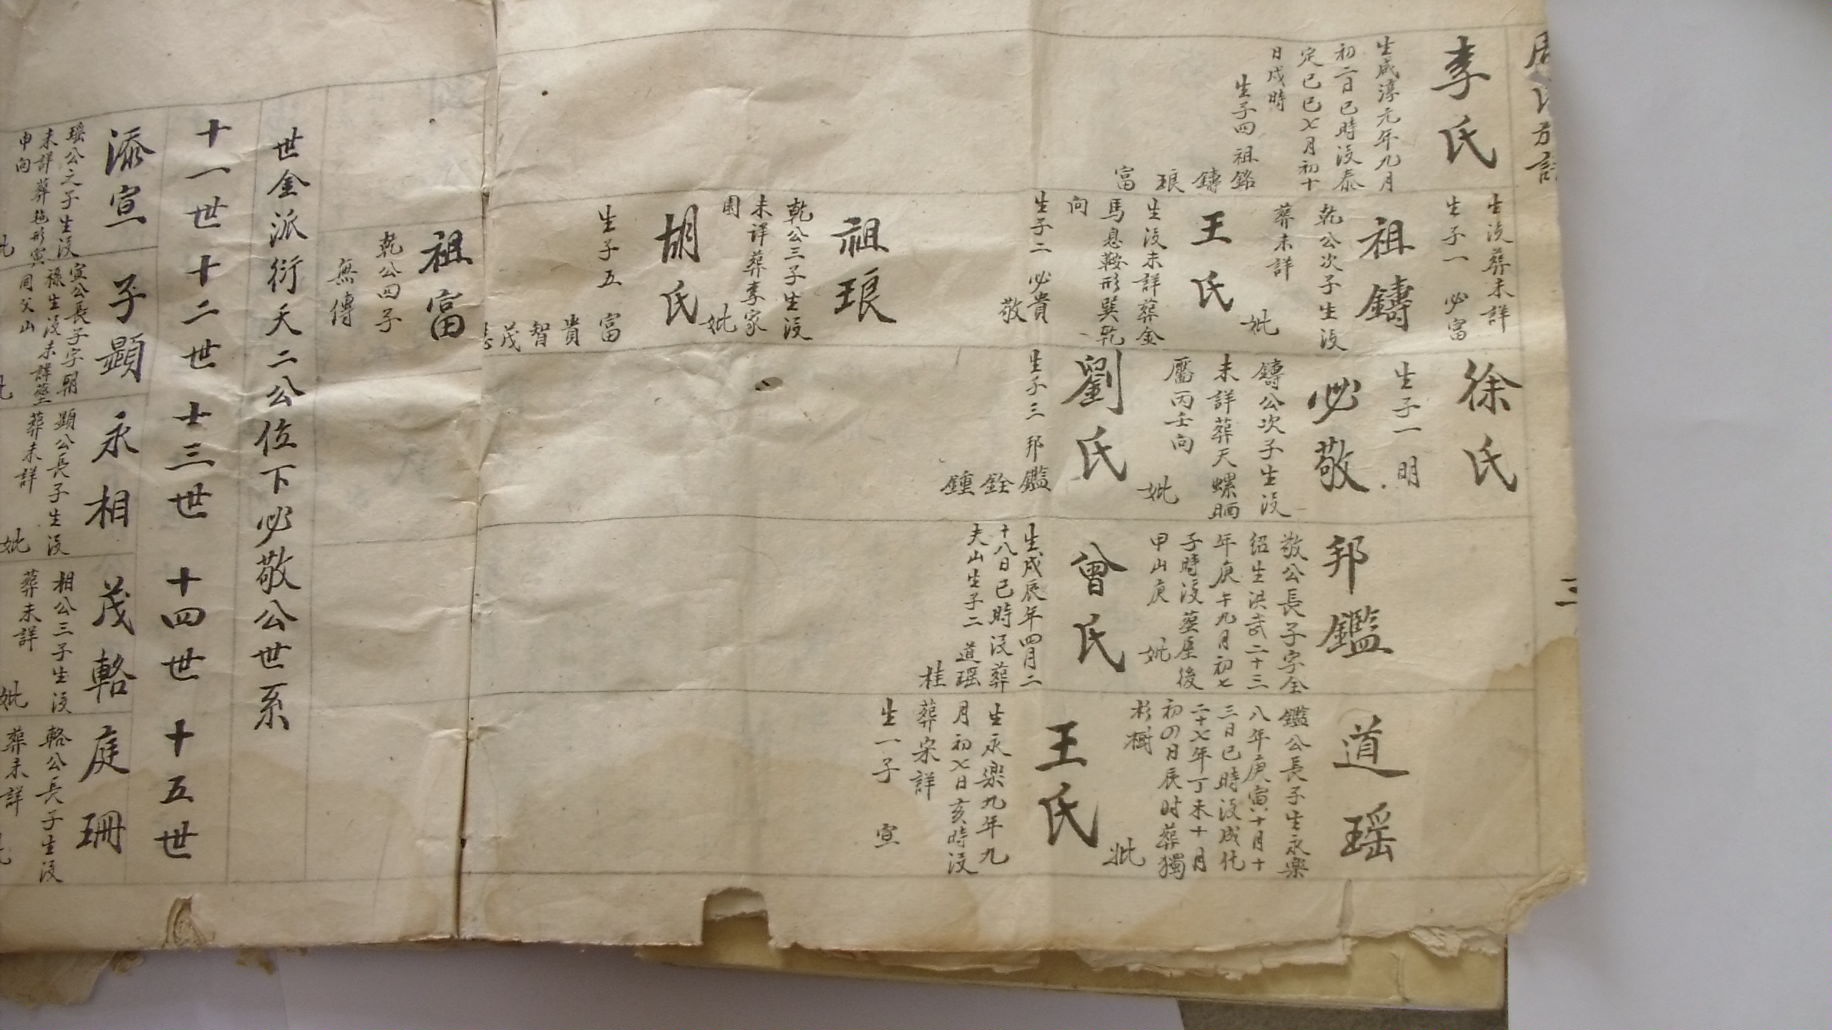 李氏
生咸淳元年九月
初二日巳時没泰
定己巳七月初十
日戌時
生子四 祖銘
鑄
琅
富
生没葬未詳
生子一 必富
祖鑄
乾公次子生没
葬未詳
妣
王氏
生没未詳葬金
馬息鞍形巽乾
向
生子二 必貴
敬
祖琅
乾公三子生没
未詳葬李家
園
妣
胡氏
生子五 富
貴
智
茂
徐氏
生子一 明
必敬
鑄公次子生没
未詳葬天螺晒
靨丙壬向
妣
劉氏
生子三 邦鑑
銓
鍾
邦鑑
敬公長子字全
紹生洪武二十三
年庚午九月初七
子時没葬屋後
甲山庚 妣
曾氏
生戊辰年四月二
十八日巳時没葬
夫山生子二 道瑶
桂
道瑶
鑑公長子生永樂
八年庚寅十月十
三日巳時没成化
二十七年丁未十月
初四日辰时葬獨
杉樹
妣
王氏
生永樂九年九
月初七日亥時没
葬未詳
生一子 宣
祖富
乾公四子
無傳
世金派衍天二公位下必敬公世系
十一世 十二世 十三世 十四世 十五世
添宣
瑶公之子生没
未詳葬拖形寅
申向
子顯
寅公長子字朝
祿生没未詳葬
同父山
永相
顯公長子生没
葬未詳
妣
茂輅
相公三子生没
葬未詳
妣
庭珊
輅公長子生没
葬未詳